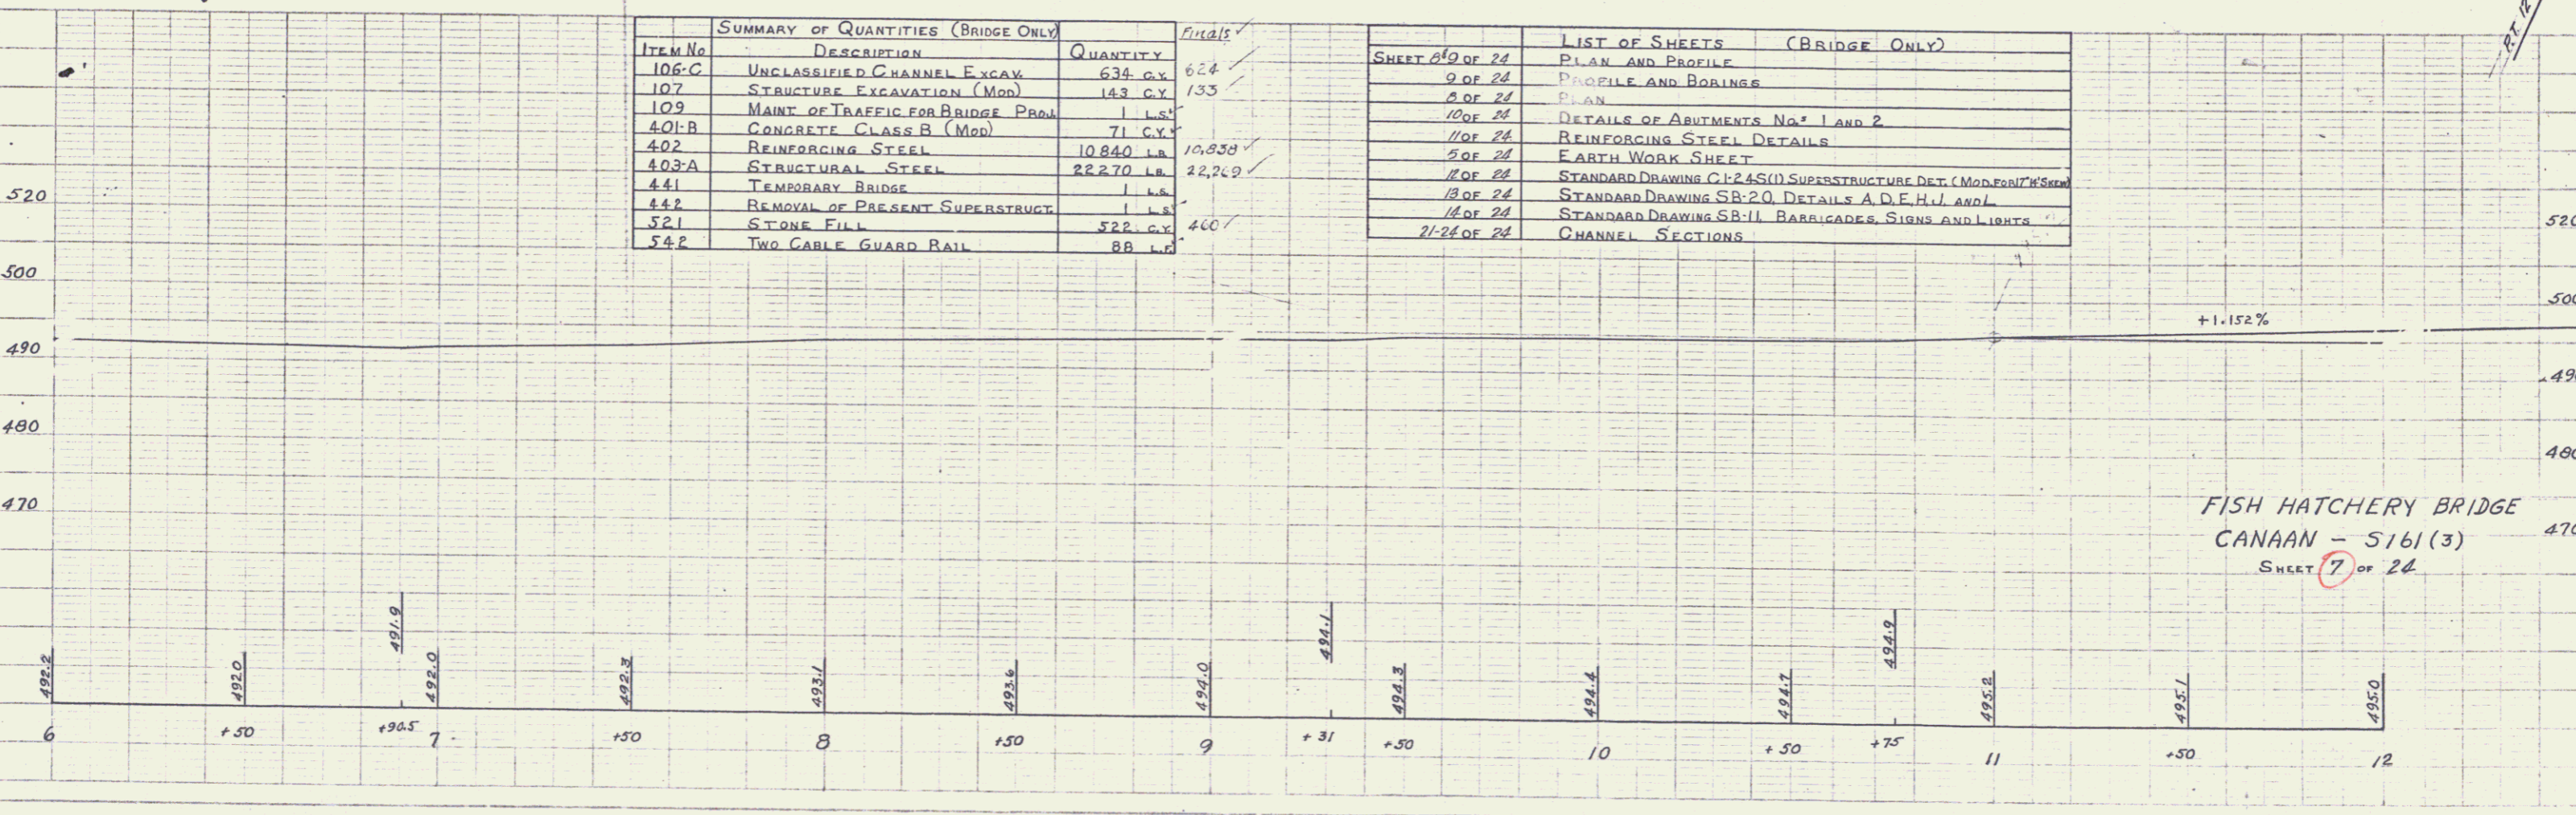 SUMMARY OF QUANTITIES (BRIDGE ONLY) Finals ✓
ITEM No DESCRIPTION QUANTITY
106-C UNCLASSIFIED CHANNEL EXCAV. 634 C.Y. 624 ✓
107 STRUCTURE EXCAVATION (MOD) 143 C.Y. 133 ✓
109 MAINT. OF TRAFFIC FOR BRIDGE PROJ. 1 L.S. ✓
401-B CONCRETE CLASS B (MOD) 71 C.Y. ✓
402 REINFORCING STEEL 10840 LB. 10,838 ✓
403-A STRUCTURAL STEEL 22270 LB. 22,269 ✓
441 TEMPORARY BRIDGE 1 L.S.
442 REMOVAL OF PRESENT SUPERSTRUCT. 1 L.S. ✓
521 STONE FILL 522 C.Y. 460 ✓
542 TWO CABLE GUARD RAIL 88 L.F. ✓
LIST OF SHEETS (BRIDGE ONLY)
SHEET 8&9 OF 24 PLAN AND PROFILE
9 OF 24 PROFILE AND BORINGS
8 OF 24 PLAN
10 OF 24 DETAILS OF ABUTMENTS No.s 1 AND 2
11 OF 24 REINFORCING STEEL DETAILS
5 OF 24 EARTH WORK SHEET
12 OF 24 STANDARD DRAWING C1-24S(1) SUPERSTRUCTURE DET. (MOD. FOR 17°14' SKEW)
13 OF 24 STANDARD DRAWING SB-20, DETAILS A, D, E, H, J, AND L
14 OF 24 STANDARD DRAWING SB-11, BARRICADES, SIGNS AND LIGHTS
21-24 OF 24 CHANNEL SECTIONS
P.T. 12
520
500
490
480
470
520
500
490
480
470
+1.152%
FISH HATCHERY BRIDGE
CANAAN - S161(3)
SHEET 7 OF 24
491.9 494.1 494.9
492.2 492.0 492.0 492.3 493.1 493.6 494.0 494.3 494.4 494.7 495.2 495.1 495.0
6 +50 +90.5 7 +50 8 +50 9 +31 +50 10 +50 +75 11 +50 12